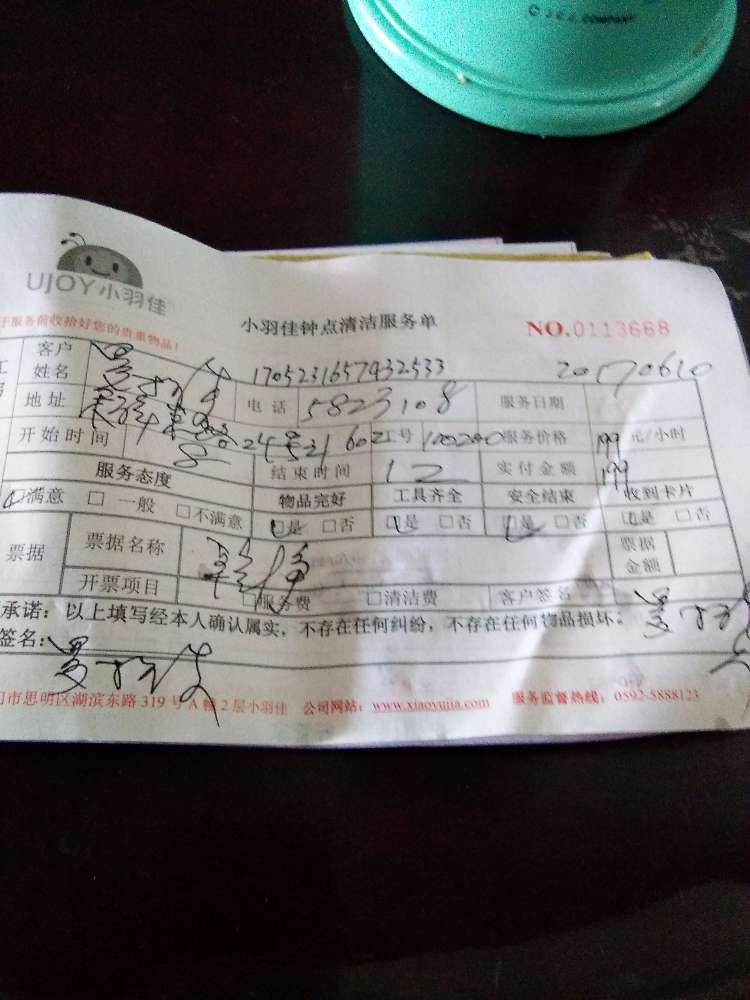 © J.C.J. COMPANY
UJOY小羽佳
服务前收拾好您的贵重物品！
小羽佳钟点清洁服务单
NO.0113668
客户姓名 1705231657432533 20170610
地址 电话 5823108 服务日期
开始时间 8 24 602 工号 服务价格 199 元/小时
服务态度 结束时间 12 实付金额 199
满意 □ 一般 □不满意 物品完好 工具齐全 安全结束 收到卡片
是 □否 是 □否 是 □否 是 □否
票据 票据名称 票据金额
开票项目 □服务费 □清洁费 客户签名
承诺：以上填写经本人确认属实，不存在任何纠纷，不存在任何物品损坏。
签名：
门市思明区湖滨东路 319 号 A 幢 2 层小羽佳 公司网站：www.xiaoyujia.com 服务监督热线：0592-5888123